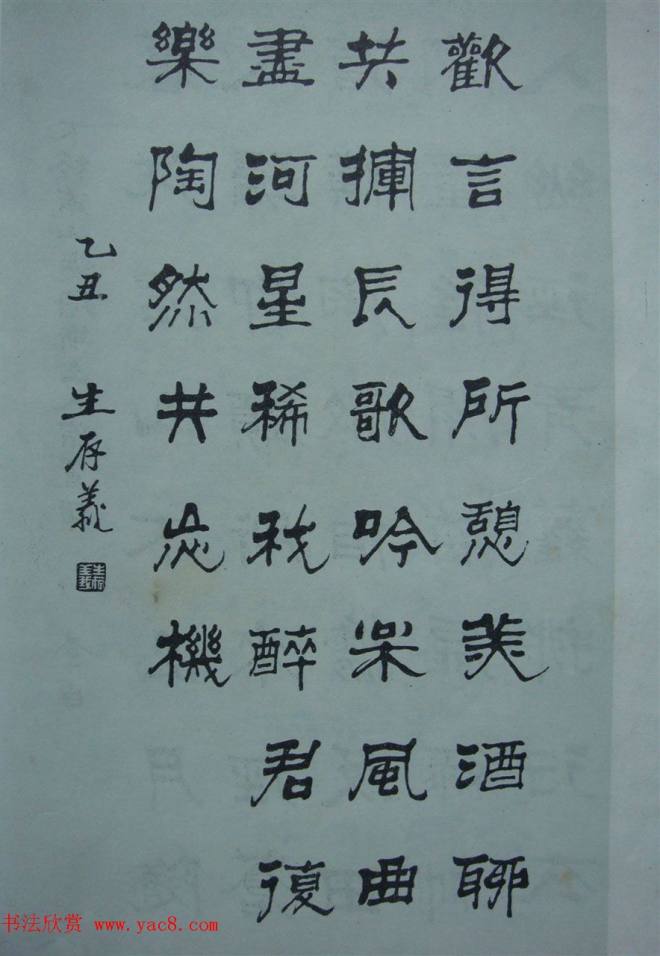 歡言得所憩美酒聊
共揮長歌吟枀風曲
盡河星稀我醉君復
樂陶然共忘機
乙丑 生存義
书法欣赏 www.yac8.com